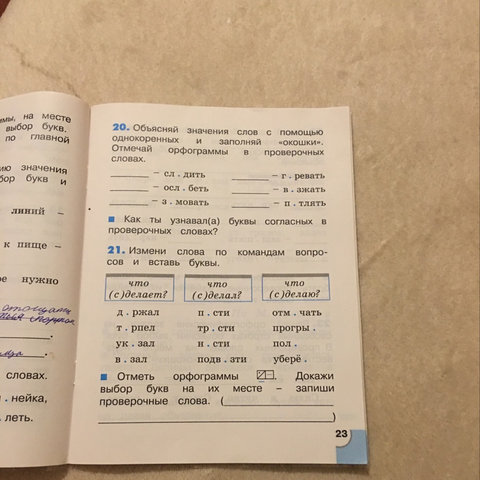 мы, на месте
выбор букв.
по главной
ию значения
бор букв и
линий –
к пище –
ре нужно
словах.
. нейка,
. леть.
20. Объясняй значения слов с помощью
однокоренных и заполняй «окошки».
Отмечай орфограммы в проверочных
словах.
– сл . дить – г . ревать
– осл . беть – в . зжать
– з . мовать – п . тлять
Как ты узнавал(а) буквы согласных в
проверочных словах?
21. Измени слова по командам вопро-
сов и вставь буквы.
что (с)делает? что (с)делал? что (с)делаю?
д . ржал п . сти отм . чать
т . рпел тр . сти прогры .
ук . зал н . сти пол .
в . зал подв . зти уберё .
Отметь орфограммы . Докажи
выбор букв на их месте – запиши
проверочные слова. (
)
23